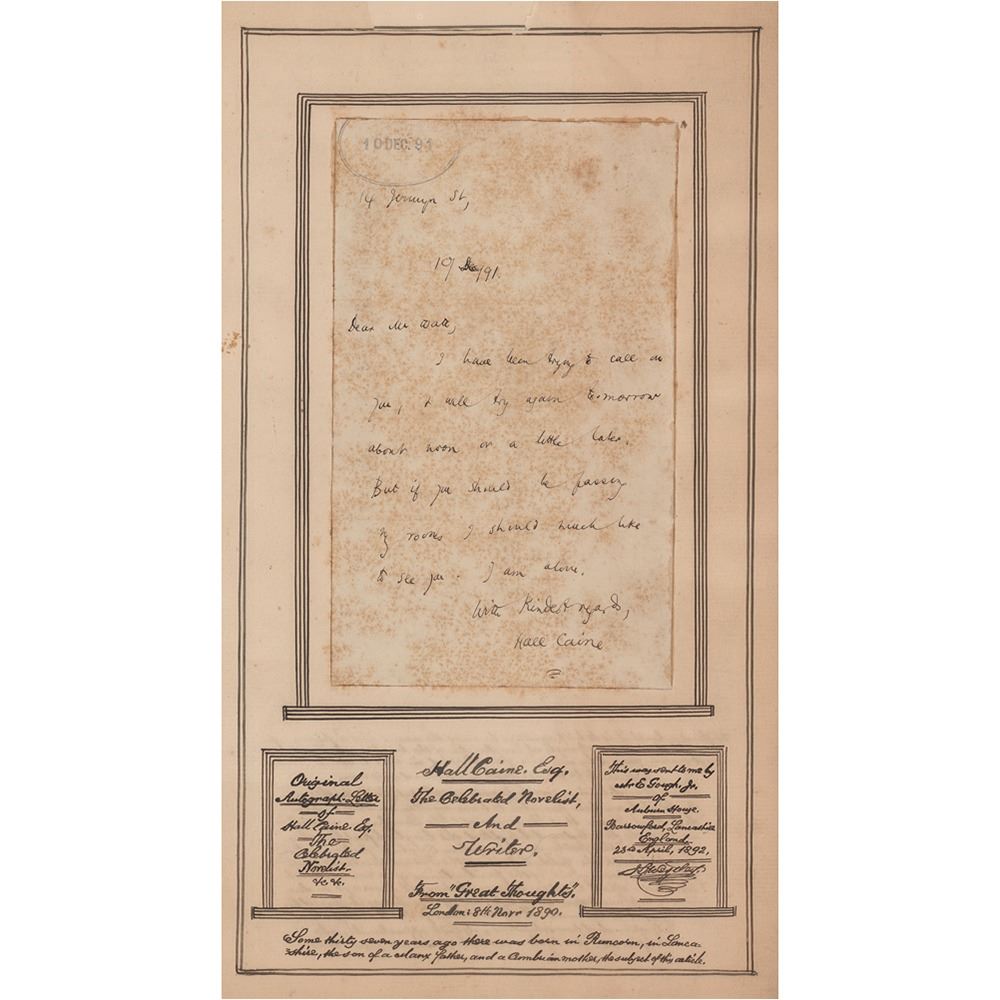 10 DEC. 91
14 Jermyn St,
10/ Dec/91.
Dear Mr Watt,
I have been trying to call on
you, & will try again to-morrow
about noon or a little later.
But if you should be passing
my rooms I should much like
to see you. I am alone.
With kindest regards,
Hall Caine
Original
Autograph-Letter
of
Hall Caine Esq.
The
Celebrated
Novelist.
&c. &c.
Hall Caine. Esq.
The Celebrated Novelist,
And
Writer.
From "Great Thoughts".
London: 8th Novr 1890.
This was sent to me by
Mr E Gough. Jr.
of
Auburn House.
Barrowford, Lancashire
England.
23rd April, 1892.
Some thirty seven years ago there was born in Runcorn, in Lanca-
-shire, the son of a Manx father, and a Cumbrian mother, the subject of this article.